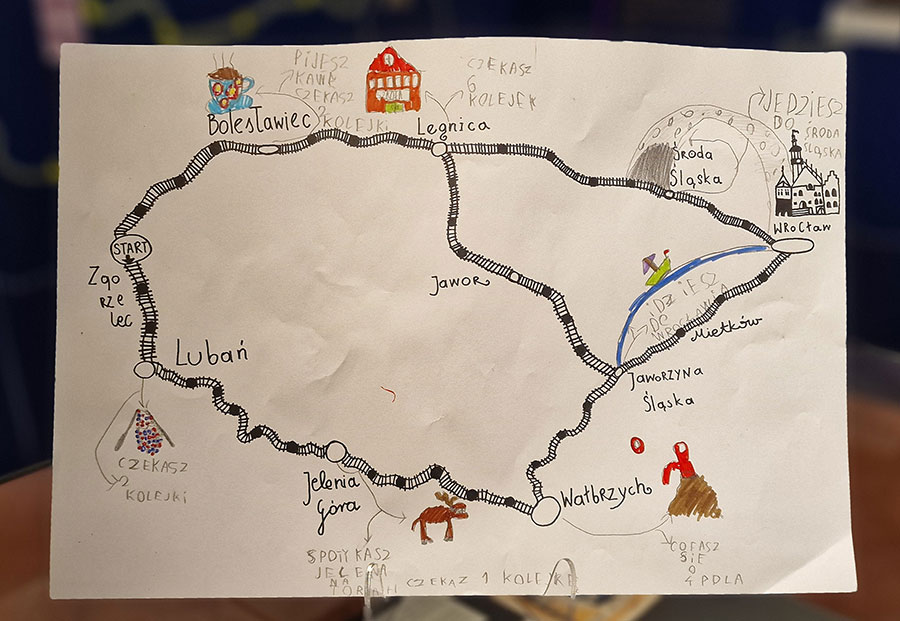 PIJESZ
KAWĘ
CZEKASZ
KOLEJKI
Bolesławiec
CZEKASZ
6
KOLEJEK
Legnica
JEDZIESZ
DO
ŚRODA
ŚLĄSKA
Środa
Śląska
WROCŁAW
START
Zgo
rze
lec
Jawor
iDZIESZ
DO
WROCŁAWIA
Mietków
Lubań
JAWORZYNA
ŚLĄSKA
CZEKASZ
2
KOLEJKI
Jelenia
Góra
Wałbrzych
SPOTYKASZ
JELENIA
NA
CZEKAZ 1 KOLEJKĘ
COFASZ
SIĘ
O
4 POLA